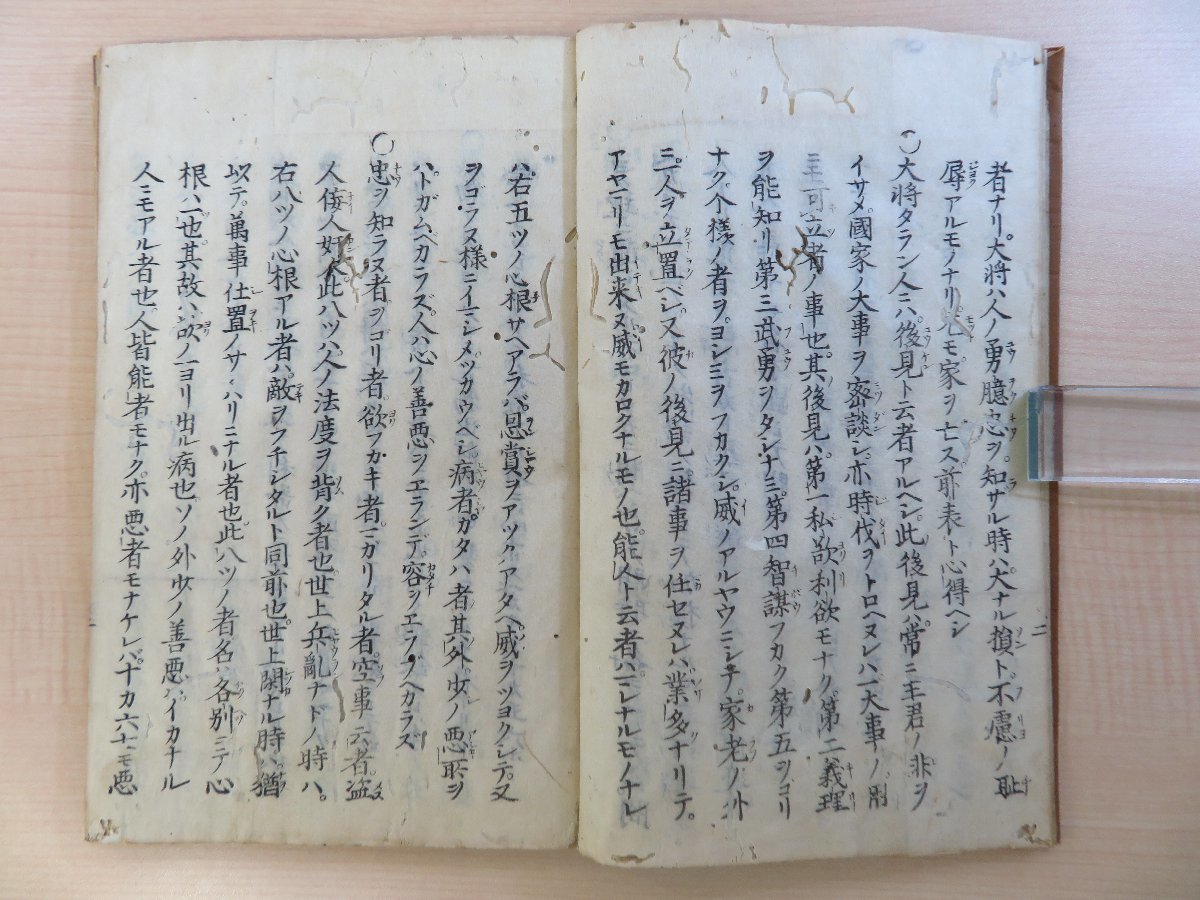 者ナリ大将ハ人ノ勇臆忠ヲ知サル時ハ大ナル損ト不慮ノ耻
辱アルモノナリ尤モ家ヲ亡ス前表ト心得ヘシ
〇大将タラン人ニハ後見ト云者アルヘシ此後見ハ常ニ主君ノ非ヲ
イサメ國家ノ大事ヲ密談シ亦時代ヲトロヘヌレハ一大事ノ刻
主可立者ノ事也其後見ハ第一私欲利欲モナク第二義理
ヲ能知リ第三武勇ヲタシナミ第四智謀フカク第五ヲコリ
ナク个様ノ者ヲヨシミヲフカクシ威ノアルヤウニシテ家老ノ外
三人ヲ立置ベシ又彼ノ後見ニ諸事ヲ仕セヌレハ業多ナリテ
アヤマリモ出来ヌ威モカロクナルモノ也能人ト云者ハマレナルモノナレ
ハ右五ツノ心根サヘアラバ恩賞ヲアツクアタヘ威ヲツヨクシテ又
ヲゴラヌ様ニイマシメツカウベシ病者カタハ者其外少ノ悪所ヲ
ハトガムベカラズ人ハ心ノ善悪ヲヱランデ容ヲエラフヘカラズ
〇忠ヲ知ラヌ者ヲコリ者欲フカキ者マガリタル者空事云者盗
人侫人奸人此八ツハ人ノ法度ヲ背ク者也世上兵亂ナドノ時ハ
右八ツノ心根アル者ハ敵ヲフチシタルト同前也世上閑ナル時ハ猶
以テ萬事仕置ノサハリニナル者也此八ツノ者名各別ニテ心
根ハ一也其故ハ欲ノ一ヨリ出ル病也ソノ外少ノ善悪ハイカナル
人ニモアル者也人皆能者モナク亦悪者モナケレバ十カ六七モ悪